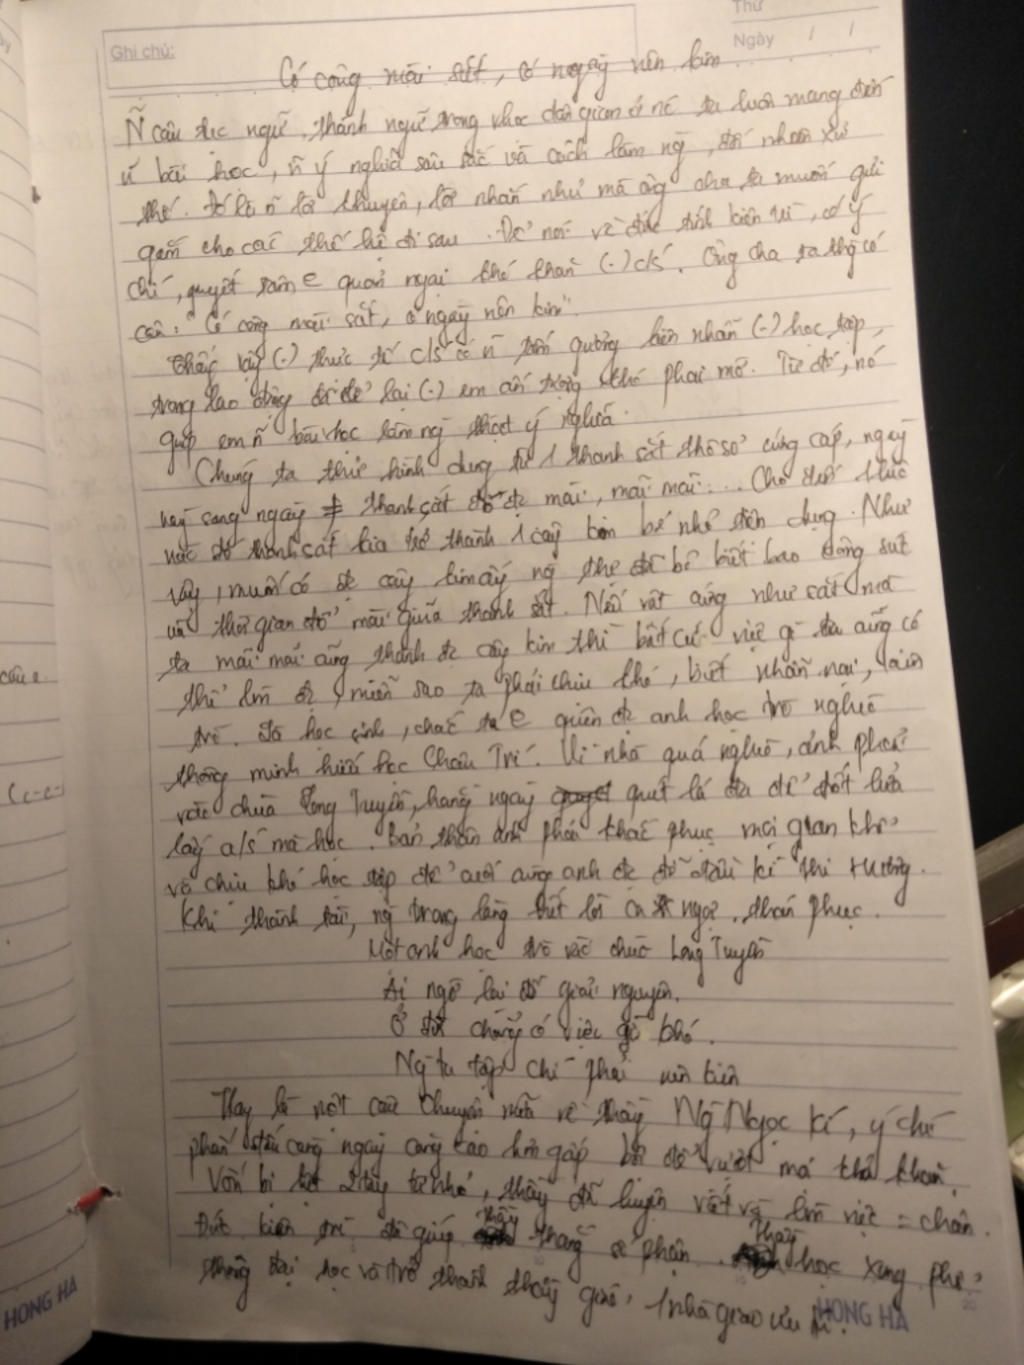 Thứ
Ghi chú:
Ngày / /
Có công mài sắt, có ngày nên kim
Ñ câu tục ngữ, thành ngữ trong vhọc dân gian ở nc ta luôn mang đến
ñ bài học, ñ ý nghĩa sâu sắc về cách làm ng, đối nhân xử
thế. Đó là ñ lời khuyên, lời nhắn nhủ mà ông cha ta muốn gửi
gắm cho các thế hệ đi sau. Để nói về đức tính kiên trì, có ý
chí, quyết tâm quản ngại khó khăn (.) c/s. Ông cha ta thg có
câu: "Có công mài sắt, có ngày nên kim".
Thật vậy (.) thực tế c/s có ñ tấm gương kiên nhẫn (.) học tập,
trong lao động đã để lại (.) em ấn tượng khó phai mờ. Từ đó, nó
giúp em ñ bài học làm ng thật ý nghĩa.
Chúng ta thử hình dung từ 1 thanh sắt thô sơ cứng cáp, ngày
này sang ngày ≠ thanh sắt đó đc mài, mài mãi... Cho đến 1 lúc
nào đó thanh sắt kia trở thành 1 cây kim bé nhỏ tiện dụng. Như
vậy, muốn có đc cây kim ấy ng thợ đã bỏ biết bao công sức
và thời gian để mài giũa thanh sắt. Nếu vật cứng như sắt mà
ta mài mãi cũng thành đc cây kim thì bất cứ việc gì ta cũng có
thể làm đc, miễn sao ta phải chịu khó, biết nhẫn nại, kiên
trì. Là học sinh, chắc ta quên đc anh học trò nghèo
thông minh hiếu học Châu Trí. Vì nhà quá nghèo, anh phải
vào chùa Long Tuyền, hằng ngày quét lá đa để đốt lửa
lấy a/s mà học. Bản thân anh phải khắc phục mọi gian khổ
và chịu khó học tập để cuối cùng anh đc đỗ đầu kì thi Hương.
Khi thành tài, ng trong làng hết lời ca ngợi, thán phục.
Một anh học trò vào chùa Long Tuyền
Ai ngờ lại đỗ giải nguyên.
Ở đời chẳng có việc gì khó.
Ng ta lập chí phải nên kiên
Hay là một câu chuyện nữa về thầy Ng Ngọc Kí, ý chí
phấn đấu càng ngày càng cao hơn gấp bội để vượt mọi khó khăn.
Vốn bị liệt 2 tay từ nhỏ, thầy đã luyện viết và làm việc = chân.
Đức kiên trì đã giúp thầy thắng số phận. Thầy học xong phổ
thông đại học và trở thành thầy giáo, 1 nhà giáo ưu tú.
HONG HA
HONG HA
câu